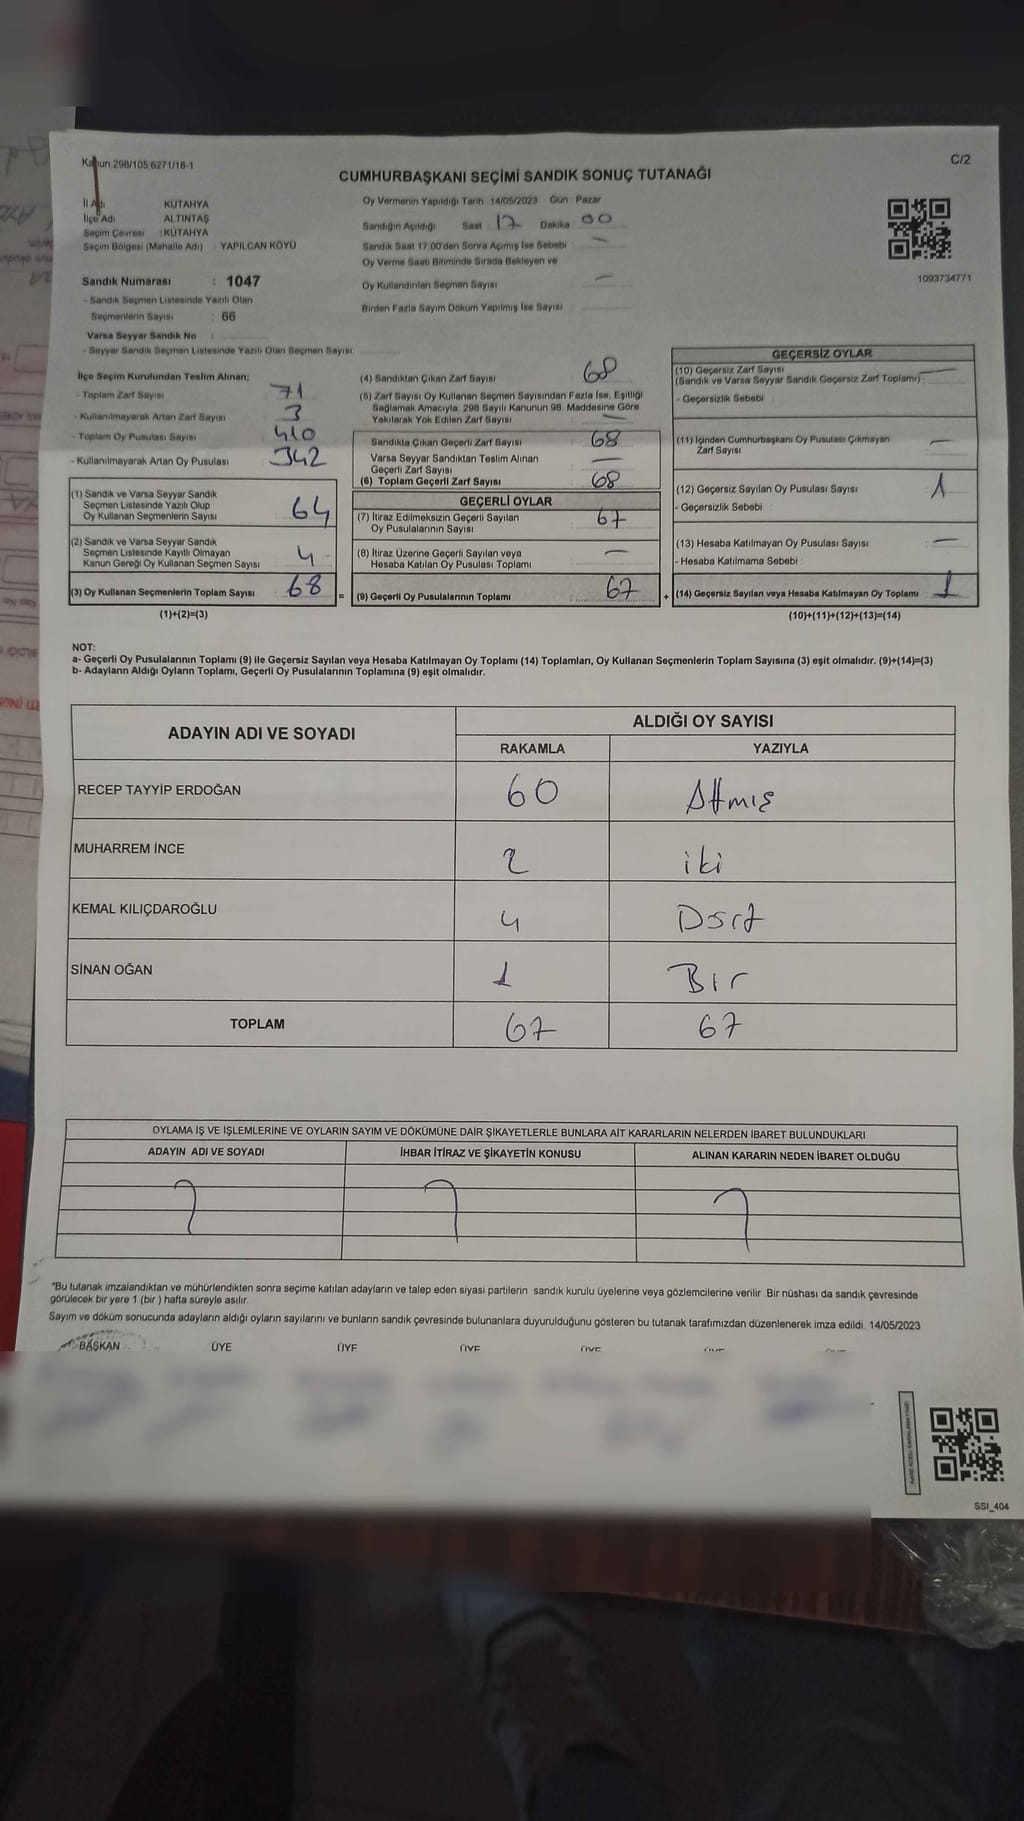 Kanun.298/105,6271/18-1
C/2
CUMHURBAŞKANI SEÇİMİ SANDIK SONUÇ TUTANAĞI
İl Adı KÜTAHYA
İlçe Adı ALTINTAŞ
Seçim Çevresi : KÜTAHYA
Seçim Bölgesi (Mahalle Adı) YAPILCAN KÖYÜ
Sandık Numarası : 1047
- Sandık Seçmen Listesinde Yazılı Olan
Seçmenlerin Sayısı : 66
Varsa Seyyar Sandık No :
- Seyyar Sandık Seçmen Listesinde Yazılı Olan Seçmen Sayısı:
Oy Vermenin Yapıldığı Tarih 14/05/2023 Gün Pazar
Sandığın Açıldığı Saat 17 Dakika : 00
Sandık Saat 17:00'den Sonra Açmış İse Sebebi : —
Oy Verme Saati Bitiminde Sırada Bekleyen ve
Oy Kullandırılan Seçmen Sayısı —
Birden Fazla Sayım Döküm Yapılmış İse Sayısı : —
1093734771
İlçe Seçim Kurulundan Teslim Alınan;
- Toplam Zarf Sayısı 71
- Kullanılmayarak Artan Zarf Sayısı 3
- Toplam Oy Pusulası Sayısı 410
- Kullanılmayarak Artan Oy Pusulası 342
(1) Sandık ve Varsa Seyyar Sandık
Seçmen Listesinde Yazılı Olup
Oy Kullanan Seçmenlerin Sayısı 64
(2) Sandık ve Varsa Seyyar Sandık
Seçmen Listesinde Kayıtlı Olmayan
Kanun Gereği Oy Kullanan Seçmen Sayısı 4
(3) Oy Kullanan Seçmenlerin Toplam Sayısı : 68
(1)+(2)=(3)
=
(4) Sandıktan Çıkan Zarf Sayısı 68
(5) Zarf Sayısı Oy Kullanan Seçmen Sayısından Fazla İse, Eşitliği
Sağlamak Amacıyla; 298 Sayılı Kanunun 98. Maddesine Göre
Yakılarak Yok Edilen Zarf Sayısı —
Sandıkta Çıkan Geçerli Zarf Sayısı 68
Varsa Seyyar Sandıktan Teslim Alınan
Geçerli Zarf Sayısı —
(6) Toplam Geçerli Zarf Sayısı 68
GEÇERLİ OYLAR
(7) İtiraz Edilmeksizin Geçerli Sayılan
Oy Pusulalarının Sayısı 67
(8) İtiraz Üzerine Geçerli Sayılan veya
Hesaba Katılan Oy Pusulası Toplamı —
(9) Geçerli Oy Pusulalarının Toplamı : 67
+
GEÇERSİZ OYLAR
(10) Geçersiz Zarf Sayısı
(Sandık ve Varsa Seyyar Sandık Geçersiz Zarf Toplamı) : —
- Geçersizlik Sebebi :
(11) İçinden Cumhurbaşkanı Oy Pusulası Çıkmayan
Zarf Sayısı —
(12) Geçersiz Sayılan Oy Pusulası Sayısı 1
- Geçersizlik Sebebi :
(13) Hesaba Katılmayan Oy Pusulası Sayısı —
- Hesaba Katılmama Sebebi :
(14) Geçersiz Sayılan veya Hesaba Katılmayan Oy Toplamı : 1
(10)+(11)+(12)+(13)=(14)
NOT:
a- Geçerli Oy Pusulalarının Toplamı (9) ile Geçersiz Sayılan veya Hesaba Katılmayan Oy Toplamı (14) Toplamları, Oy Kullanan Seçmenlerin Toplam Sayısına (3) eşit olmalıdır. (9)+(14)=(3)
b- Adayların Aldığı Oyların Toplamı, Geçerli Oy Pusulalarının Toplamına (9) eşit olmalıdır.
ADAYIN ADI VE SOYADI ALDIĞI OY SAYISI
RAKAMLA YAZIYLA
RECEP TAYYİP ERDOĞAN 60 Altmış
MUHARREM İNCE 2 iki
KEMAL KILIÇDAROĞLU 4 Dört
SİNAN OĞAN 1 Bir
TOPLAM 67 67
OYLAMA İŞ VE İŞLEMLERİNE VE OYLARIN SAYIM VE DÖKÜMÜNE DAİR ŞİKAYETLERLE BUNLARA AİT KARARLARIN NELERDEN İBARET BULUNDUKLARI
ADAYIN ADI VE SOYADI İHBAR İTİRAZ VE ŞİKAYETİN KONUSU ALINAN KARARIN NEDEN İBARET OLDUĞU
*Bu tutanak imzalandıktan ve mühürlendikten sonra seçime katılan adayların ve talep eden siyasi partilerin sandık kurulu üyelerine veya gözlemcilerine verilir. Bir nüshası da sandık çevresinde
görülecek bir yere 1 (bir ) hafta süreyle asılır.
Sayım ve döküm sonucunda adayların aldığı oyların sayılarını ve bunların sandık çevresinde bulunanlara duyurulduğunu gösteren bu tutanak tarafımızdan düzenlenerek imza edildi. 14/05/2023
BAŞKAN ÜYE ÜYE ÜYE ÜYE
SSI_404